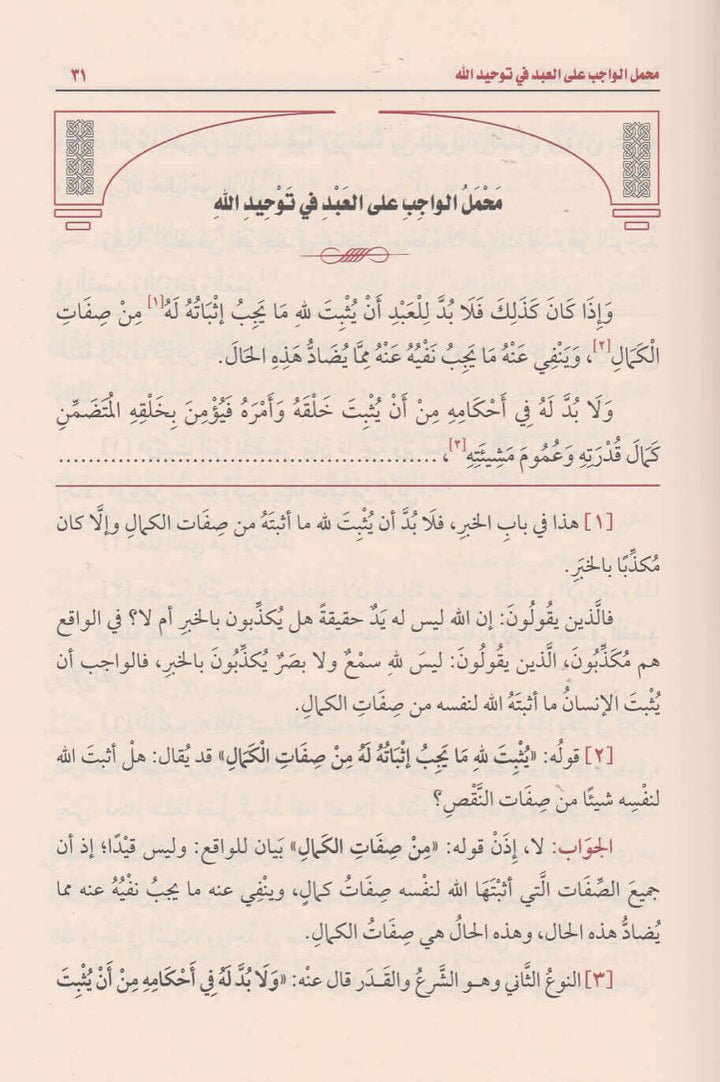 محمل الواجب على العبد في توحيد الله ٣١
مَحْمَلُ الواجِبِ على العَبْدِ في تَوْحيدِ اللهِ
وَإِذَا كَانَ كَذَلِكَ فَلَا بُدَّ لِلْعَبْدِ أَنْ يُثْبِتَ للهِ مَا يَجِبُ إثْبَاتُهُ لَهُ[١] مِنْ صِفَاتِ
الْكَمَالِ[٢]، وَيَنْفِي عَنْهُ مَا يَجِبُ نَفْيُهُ عَنْهُ مِمَّا يُضَادُّ هَذِهِ الحَالَ.
وَلَا بُدَّ لَهُ فِي أَحْكَامِهِ مِنْ أَنْ يُثْبِتَ خَلْقَهُ وَأَمْرَهُ فَيُؤْمِنَ بِخَلْقِهِ المُتَضَمِّنِ
كَمَالَ قُدْرَتِهِ وَعُمُومَ مَشِيئَتِهِ[٣]، ..................................................
[١] هذا في بابِ الخبرِ، فلَا بُدَّ أن يُثْبِتَ لله ما أثبتَهُ من صفَات الكمالِ وإلَّا كان
مُكذِّبًا بالخبَرِ.
فالَّذين يقُولُونَ: إن الله ليس له يَدٌ حقيقةً هل يُكذِّبون بالخبرِ أم لا؟ في الواقع
هم مُكَذِّبُونَ، الَّذين يقُولُونَ: ليسَ للهِ سمْعٌ ولا بصَرٌ يُكذِّبُونَ بالخبَرِ، فالواجب أن
يُثْبتَ الإنسانُ ما أثبتَهُ الله لنفسه من صفَاتِ الكمالِ.
[٢] قولُه: «يُثْبِتَ للهِ مَا يَجِبُ إثْبَاتُهُ لَهُ مِنْ صِفَاتِ الْكَمَالِ» قد يُقال: هلْ أثبتَ الله
لنفْسِه شيئًا من صفَات النَّقْصِ؟
الجوَاب: لا، إِذَنْ قوله: «مِنْ صِفَاتِ الكمالِ» بَيان للواقع: وليس قيْدًا؛ إذ أن
جميعَ الصِّفَات الَّتي أثبْتَهَا الله لنفْسه صفَاتُ كمالٍ، وينْفِي عنه ما يجبُ نفْيُهُ عنه مما
يُضادُّ هذه الحال، وهذه الحالُ هي صِفَاتُ الكمالِ.
[٣] النوعُ الثَّاني وهو الشَّرعُ والقَدَر قال عنْه: «وَلَا بُدَّ لَهُ فِي أَحْكَامِهِ مِنْ أَنْ يُثْبِتَ